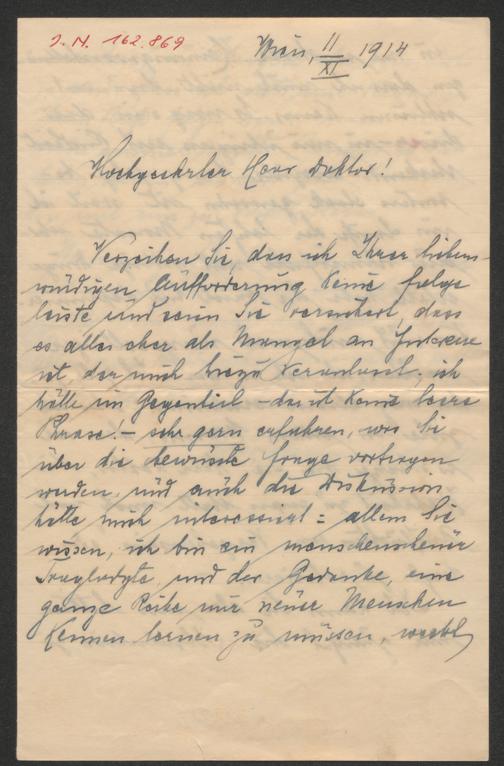 J. N. 162.869
Wien, 11/XI 1914
Hochgeehrter Herr Doktor!
Verzeihen Sie, dass ich Ihrer liebens-
würdigen Aufforderung keine Folge
leiste und seien Sie versichert, dass
es alles eher als Mangel an Interesse
ist, der mich hiezu veranlasst; ich
hätte im Gegenteil – das ist keine leere
Phrase! – sehr gern erfahren, was Sie
über die bewusste Frage vortragen
werden, und auch die Diskussion
hätte mich interessiert: allein Sie
wissen, ich bin ein menschenscheuer
Troglodyte, und der Gedanke, eine
ganze Reihe mir neuer Menschen
kennen lernen zu müssen, weckt